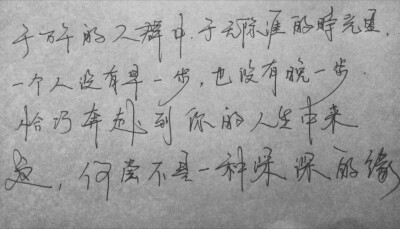 于万千的人群中，于无际涯的时光里，
一个人没有早一步，也没有晚一步．
恰巧奔赴到你的人生中来
这，何尝不是一种深深的缘